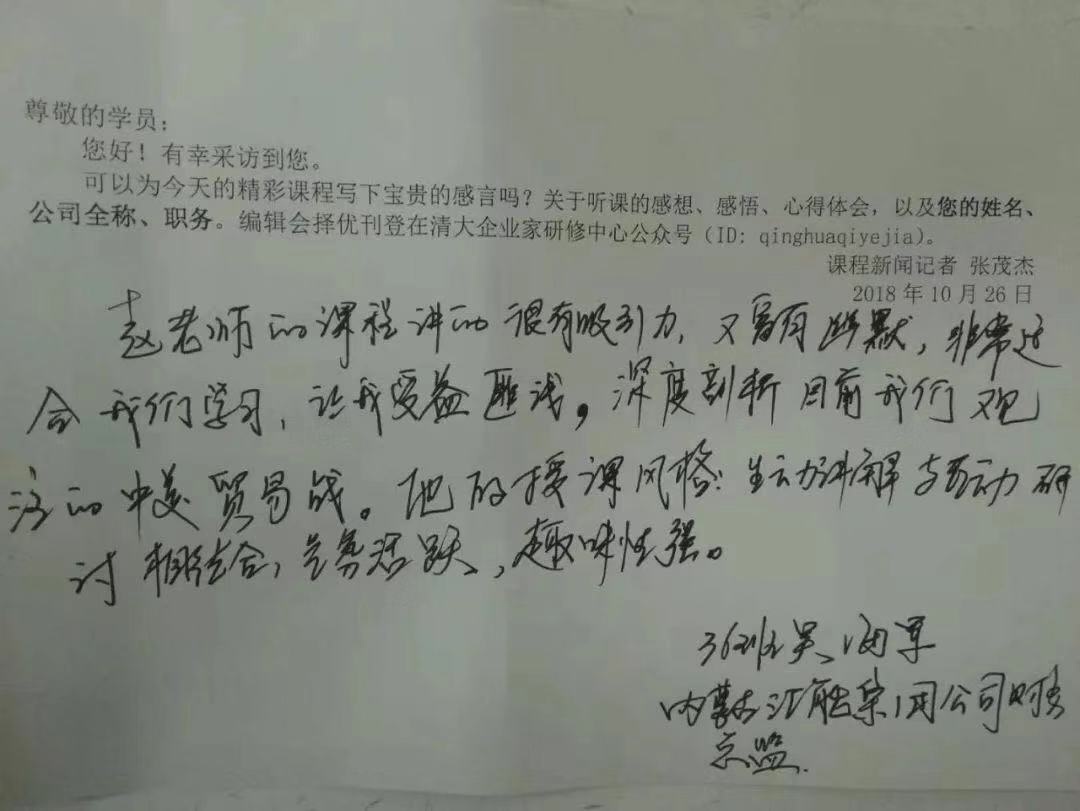 尊敬的学员：
您好！有幸采访到您。
可以为今天的精彩课程写下宝贵的感言吗？关于听课的感想、感悟、心得体会，以及您的姓名、
公司全称、职务。编辑会择优刊登在清大企业家研修中心公众号（ID: qinghuaqiyejia）。
课程新闻记者 张茂杰
2018 年 10 月 26 日
赵老师的课程讲的很有吸引力，又富有幽默，非常适
合我们学习，让我受益匪浅。深度剖析目前我们观
注的中美贸易战。他的授课风格：生动讲解与互动研
讨相结合，气氛活跃，趣味性强。
36班 吴海军
内蒙古汇能集团公司财务
总监